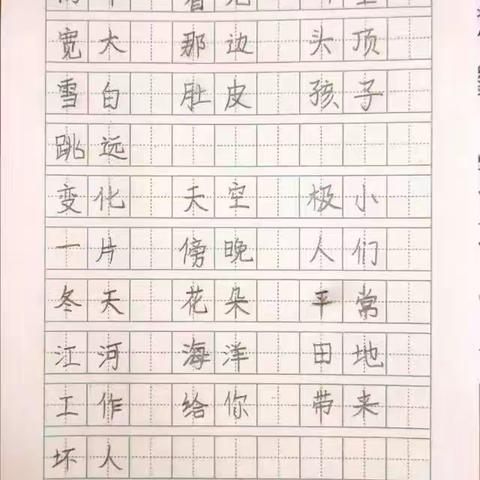 宽大 那边 头顶
雪白 肚皮 孩子
跳远
变化 天空 极小
一片 傍晚 人们
冬天 花朵 平常
江河 海洋 田地
工作 给你 带来
坏人